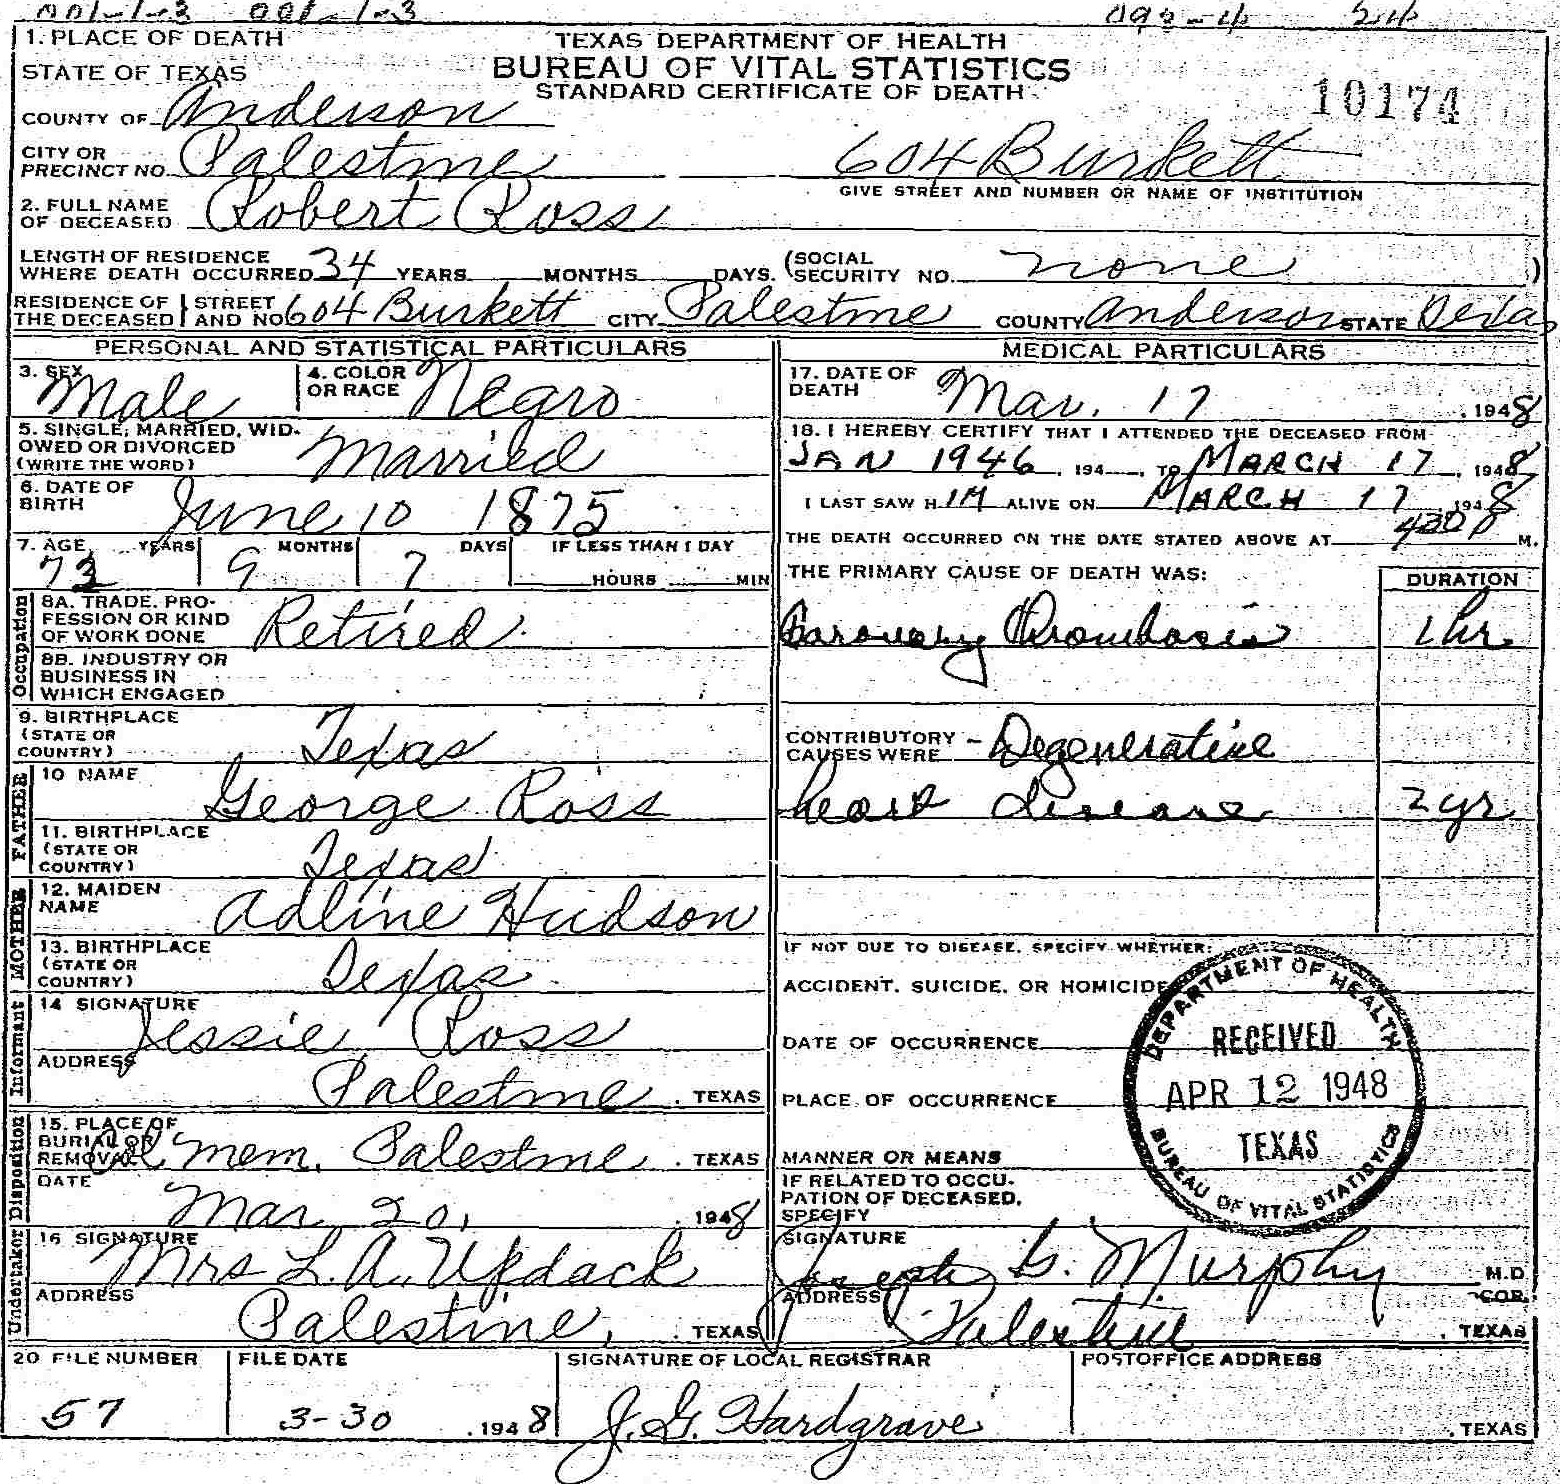 001-1-3 001-1-3 092-4 24
1. PLACE OF DEATH
STATE OF TEXAS
TEXAS DEPARTMENT OF HEALTH
BUREAU OF VITAL STATISTICS
STANDARD CERTIFICATE OF DEATH
10174
COUNTY OF Anderson
CITY OR PRECINCT NO. Palestine 604 Burkett
GIVE STREET AND NUMBER OR NAME OF INSTITUTION
2. FULL NAME OF DECEASED Robert Ross
LENGTH OF RESIDENCE WHERE DEATH OCCURRED 34 YEARS MONTHS DAYS. (SOCIAL SECURITY NO. none )
RESIDENCE OF THE DECEASED STREET AND NO 604 Burkett CITY Palestine COUNTY Anderson STATE Texas
PERSONAL AND STATISTICAL PARTICULARS
3. SEX Male 4. COLOR OR RACE Negro
5. SINGLE, MARRIED, WIDOWED OR DIVORCED (WRITE THE WORD) Married
6. DATE OF BIRTH June 10 1875
7. AGE YEARS MONTHS DAYS IF LESS THAN 1 DAY
73 9 7 HOURS MIN
Occupation
8A. TRADE, PROFESSION OR KIND OF WORK DONE Retired
8B. INDUSTRY OR BUSINESS IN WHICH ENGAGED
9. BIRTHPLACE (STATE OR COUNTRY) Texas
FATHER
10 NAME George Ross
11. BIRTHPLACE (STATE OR COUNTRY) Texas
MOTHER
12. MAIDEN NAME Adline Hudson
13. BIRTHPLACE (STATE OR COUNTRY) Texas
Informant
14 SIGNATURE Jessie Ross
ADDRESS Palestine . TEXAS
Disposition
15. PLACE OF BURIAL OR REMOVAL Mem. Palestine . TEXAS
DATE Mar 20, . 1948
Undertaker
16 SIGNATURE Mrs L. A. Updack
ADDRESS Palestine, . TEXAS
MEDICAL PARTICULARS
17. DATE OF DEATH Mar. 17 . 1948
18. I HEREBY CERTIFY THAT I ATTENDED THE DECEASED FROM
JAN 1946 , 194 , TO MARCH 17 , 1948
I LAST SAW H IM ALIVE ON MARCH 17 1948
THE DEATH OCCURRED ON THE DATE STATED ABOVE AT 430 P M.
THE PRIMARY CAUSE OF DEATH WAS: DURATION
Coronary Thrombosis 1 hr
CONTRIBUTORY CAUSES WERE - Degenerative
heart disease 2 yr
IF NOT DUE TO DISEASE, SPECIFY WHETHER:
ACCIDENT, SUICIDE, OR HOMICIDE
DATE OF OCCURRENCE
PLACE OF OCCURRENCE
MANNER OR MEANS
IF RELATED TO OCCUPATION OF DECEASED, SPECIFY
DEPARTMENT OF HEALTH
RECEIVED
APR 12 1948
TEXAS
BUREAU OF VITAL STATISTICS
SIGNATURE Joseph G. Murphy M.D. COR.
ADDRESS Palestine . TEXAS
20 FILE NUMBER FILE DATE SIGNATURE OF LOCAL REGISTRAR POSTOFFICE ADDRESS
57 3-30 . 1948 J. G. Hardgrave . TEXAS